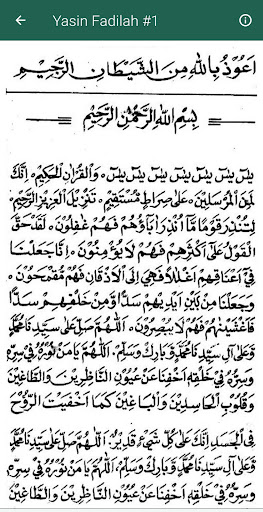 Yasin Fadilah #1
اَعُوْذُ بِاللهِ مِنَ الشَّيْطَانِ الرَّجِيْمِ
بِسْمِ اللهِ الرَّحْمٰنِ الرَّحِيْمِ
يسٓ يسٓ يسٓ يسٓ يسٓ يسٓ يسٓ ۞ وَالْقُرْاٰنِ الْحَكِيْمِ ۞ اِنَّكَ
لَمِنَ الْمُرْسَلِيْنَ ۞ عَلٰى صِرَاطٍ مُسْتَقِيْمٍ ۞ تَنْزِيْلَ الْعَزِيْزِ الرَّحِيْمِ ۞
لِتُنْذِرَ قَوْمًا مَّآ اُنْذِرَ اٰبَآؤُهُمْ فَهُمْ غٰفِلُوْنَ ۞ لَقَدْ حَقَّ
الْقَوْلُ عَلٰٓى اَكْثَرِهِمْ فَهُمْ لَا يُؤْمِنُوْنَ ۞ اِنَّا جَعَلْنَا
فِيْٓ اَعْنَاقِهِمْ اَغْلٰلًا فَهِيَ اِلَى الْاَذْقَانِ فَهُمْ مُّقْمَحُوْنَ ۞
وَجَعَلْنَا مِنْۢ بَيْنِ اَيْدِيْهِمْ سَدًّا وَّمِنْ خَلْفِهِمْ سَدًّا
فَاَغْشَيْنٰهُمْ فَهُمْ لَا يُبْصِرُوْنَ ۞ اَللّٰهُمَّ صَلِّ عَلٰى سَيِّدِنَا مُحَمَّدٍ
وَعَلٰى اٰلِ سَيِّدِنَا مُحَمَّدٍ وَبَارِكْ وَسَلِّمْ. اَللّٰهُمَّ يَا مَنْ نُوْرُهُ فِيْ سِرِّهِ
وَسِرُّهُ فِيْ خَلْقِهِ اَخْفِنَا عَنْ عُيُوْنِ النَّاظِرِيْنَ وَالطَّاغِيْنَ
وَقُلُوْبِ الْحَاسِدِيْنَ وَالْبَاغِيْنَ كَمَا اَخْفَيْتَ الرُّوْحَ
فِي الْجَسَدِ اِنَّكَ عَلٰى كُلِّ شَيْءٍ قَدِيْرٌ. اَللّٰهُمَّ صَلِّ عَلٰى سَيِّدِنَا مُحَمَّدٍ
وَعَلٰى اٰلِ سَيِّدِنَا مُحَمَّدٍ وَبَارِكْ وَسَلِّمْ. اَللّٰهُمَّ يَا مَنْ نُوْرُهُ فِيْ سِرِّهِ
وَسِرُّهُ فِيْ خَلْقِهِ اَخْفِنَا عَنْ عُيُوْنِ النَّاظِرِيْنَ وَالطَّاغِيْنَ